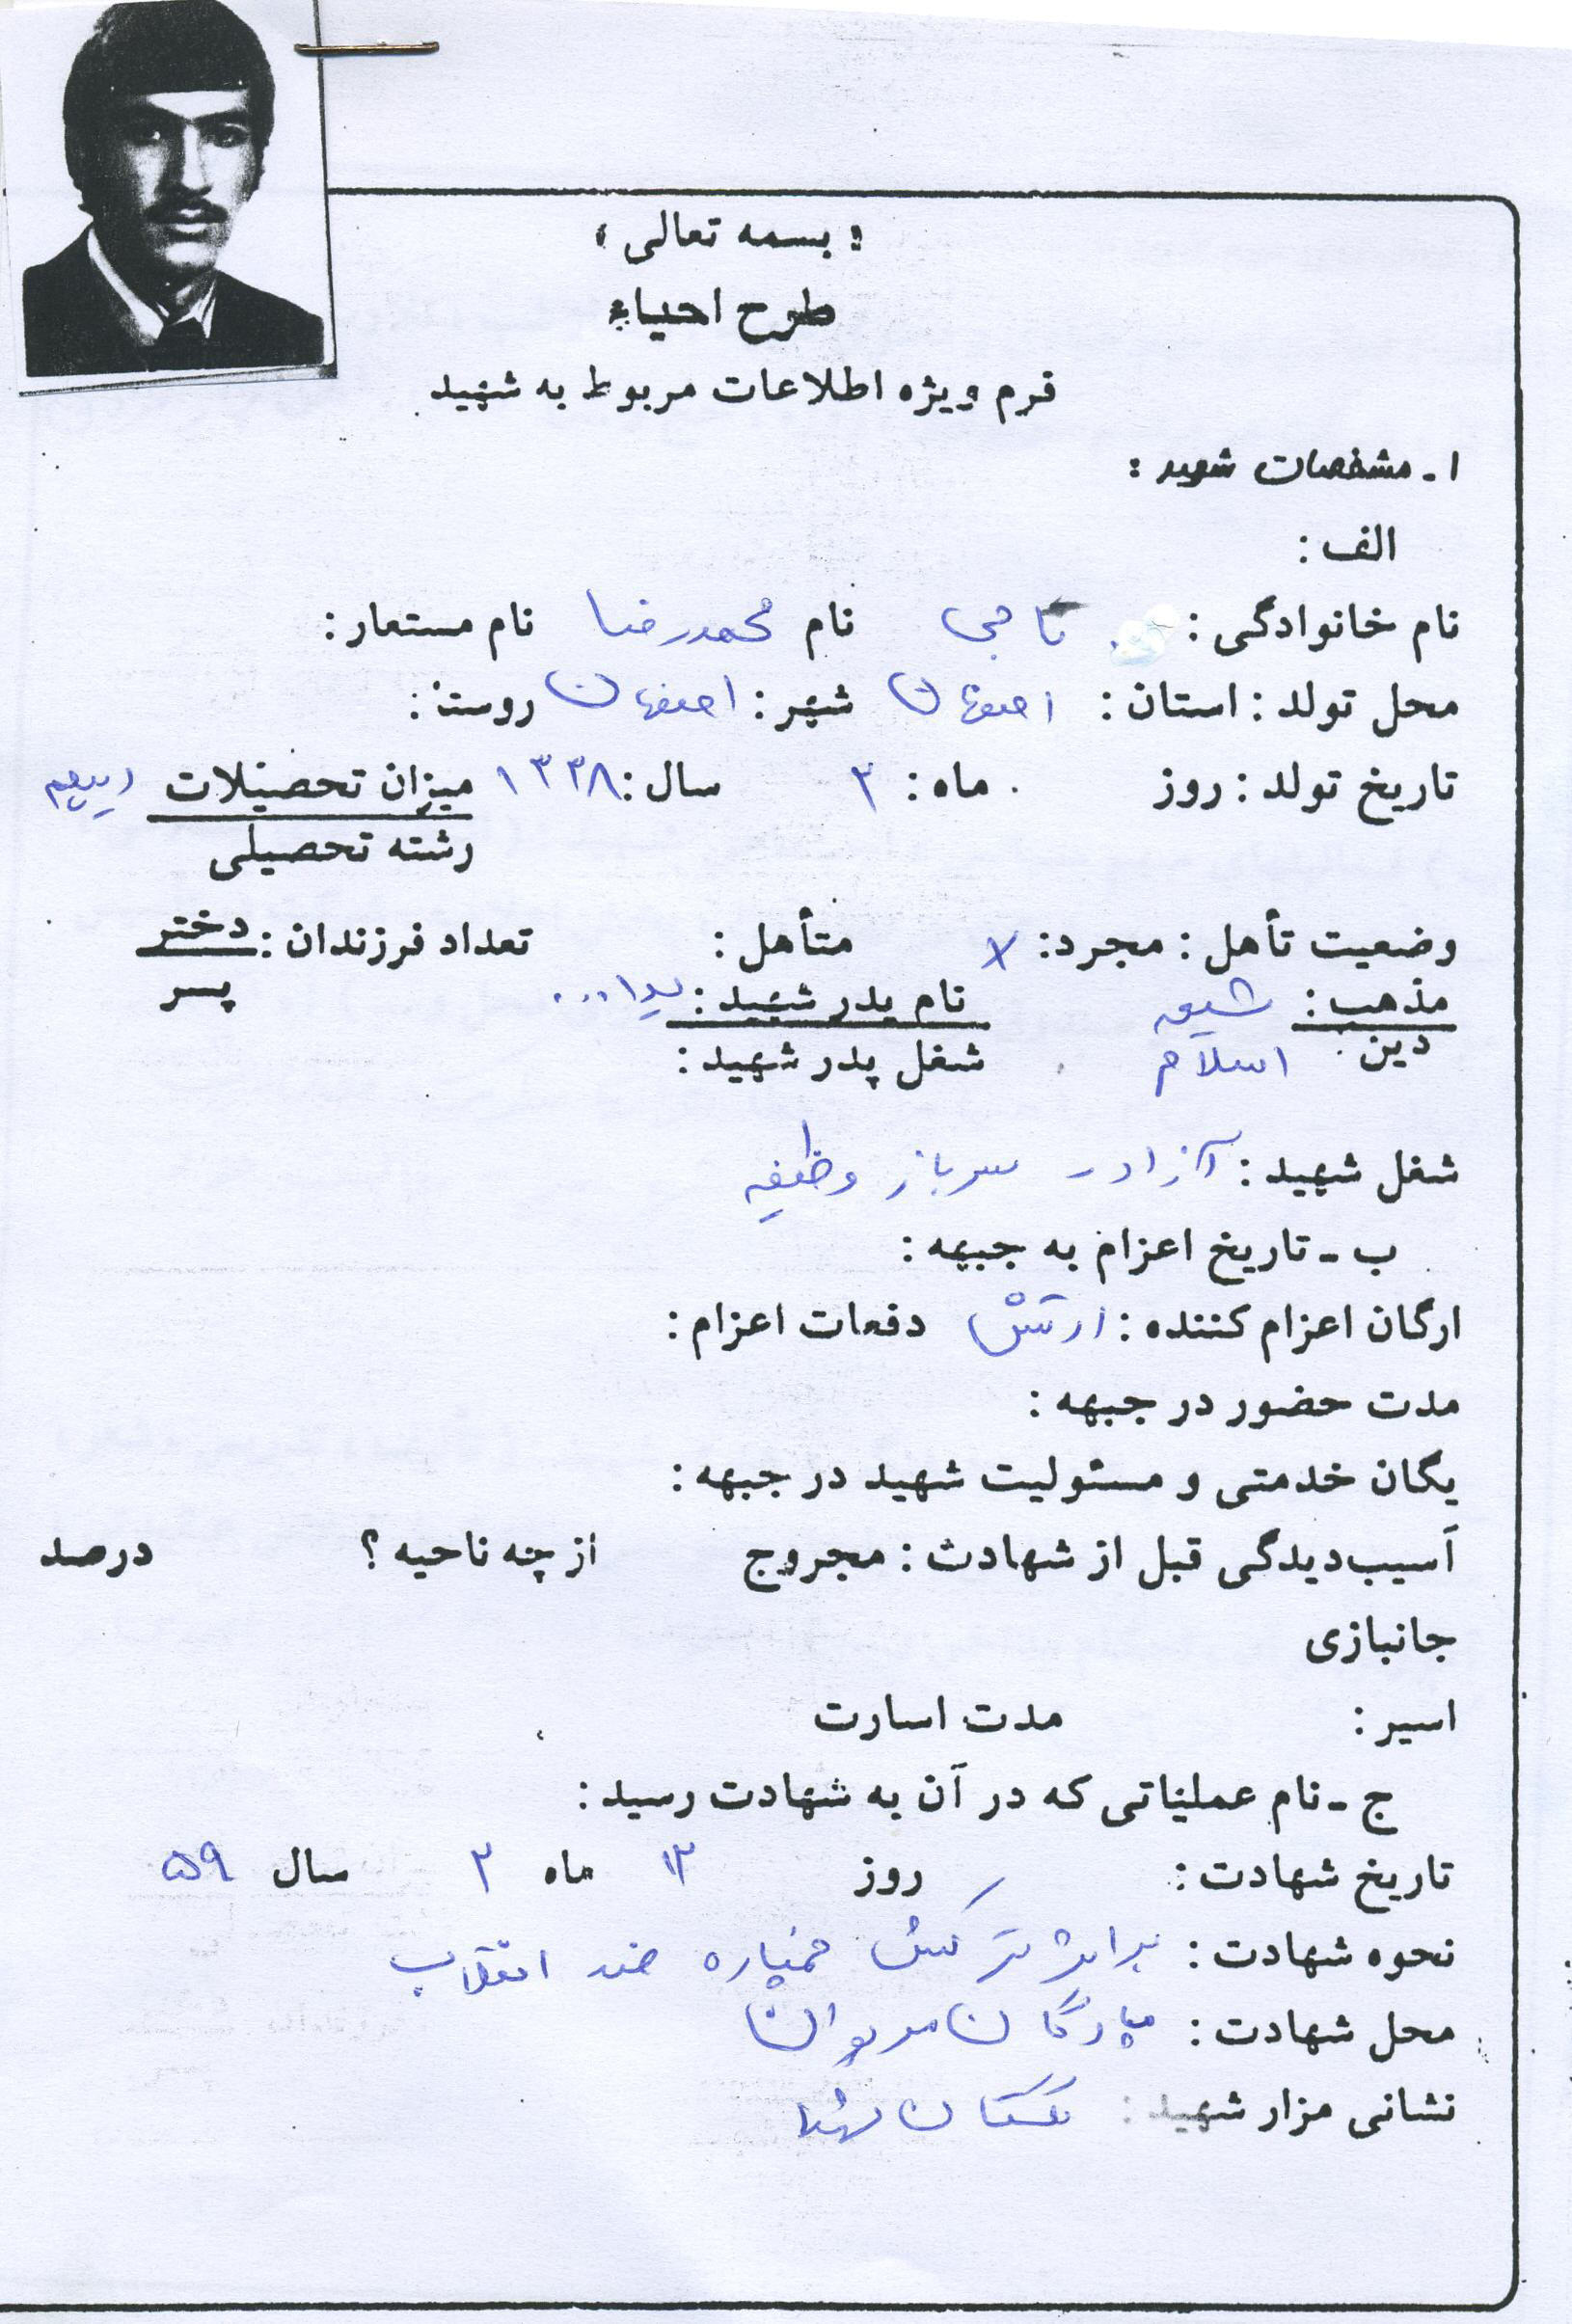 « بسمه تعالی »
طرح احیاء
فرم ویژه اطلاعات مربوط به شهید
۱ـ مشخصات شهید :
الف :
نام خانوادگی : تاجی نام محمدرضا نام مستعار :
محل تولد : استان : اصفهان شهر : اصفهان روستا :
تاریخ تولد : روز ماه : ۳ سال : ۱۳۳۸ میزان تحصیلات دیپلم
رشته تحصیلی
وضعیت تأهل : مجرد : × متأهل : تعداد فرزندان : دختر
پسر
مذهب : شیعه نام پدر شهید : یدا...
دین : اسلام شغل پدر شهید :
شغل شهید : آزاد ـ سرباز وظیفه
ب ـ تاریخ اعزام به جبهه :
ارگان اعزام کننده : ارتش دفعات اعزام :
مدت حضور در جبهه :
یگان خدمتی و مسئولیت شهید در جبهه :
آسیب‌دیدگی قبل از شهادت : مجروح از چه ناحیه ؟ درصد
جانبازی
اسیر : مدت اسارت
ج ـ نام عملیاتی که در آن به شهادت رسید :
تاریخ شهادت : روز ۱۳ ماه ۳ سال ۵۹
نحوه شهادت : براثر ترکش خمپاره ضد انقلاب
محل شهادت : پادگان مریوان
نشانی مزار شهید : گلستان شهدا